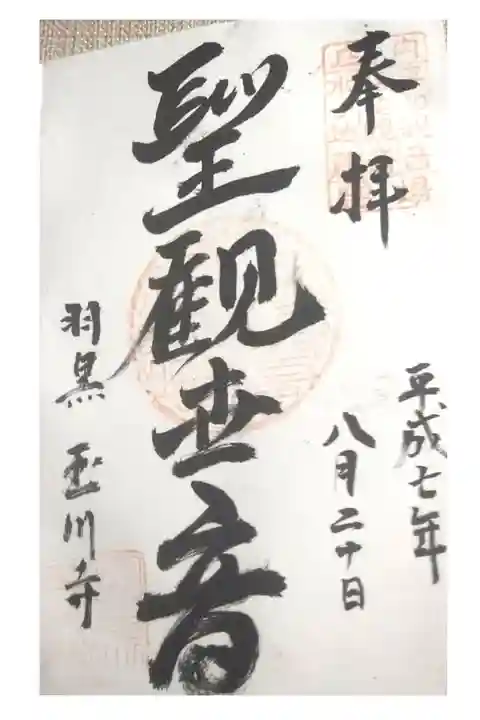 奉拝
平成七年
八月二十日
聖観世音
羽黒 玉川寺